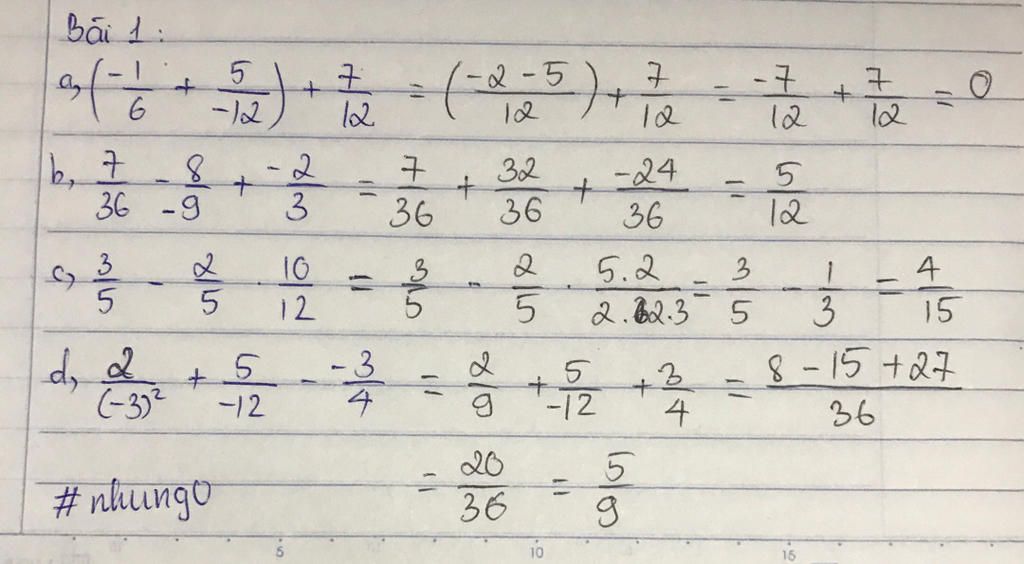 Bài 1:
a, (-1/6 + 5/-12) + 7/12 = (-2-5/12) + 7/12 = -7/12 + 7/12 = 0
b, 7/36 - 8/-9 + -2/3 = 7/36 + 32/36 + -24/36 = 5/12
c, 3/5 - 2/5 . 10/12 = 3/5 - 2/5 . 5.2/2.2.3 = 3/5 - 1/3 = 4/15
d, 2/(-3)² + 5/-12 - -3/4 = 2/9 + 5/-12 + 3/4 = 8-15+27/36
= 20/36 = 5/9
#nhung0
5 10 15